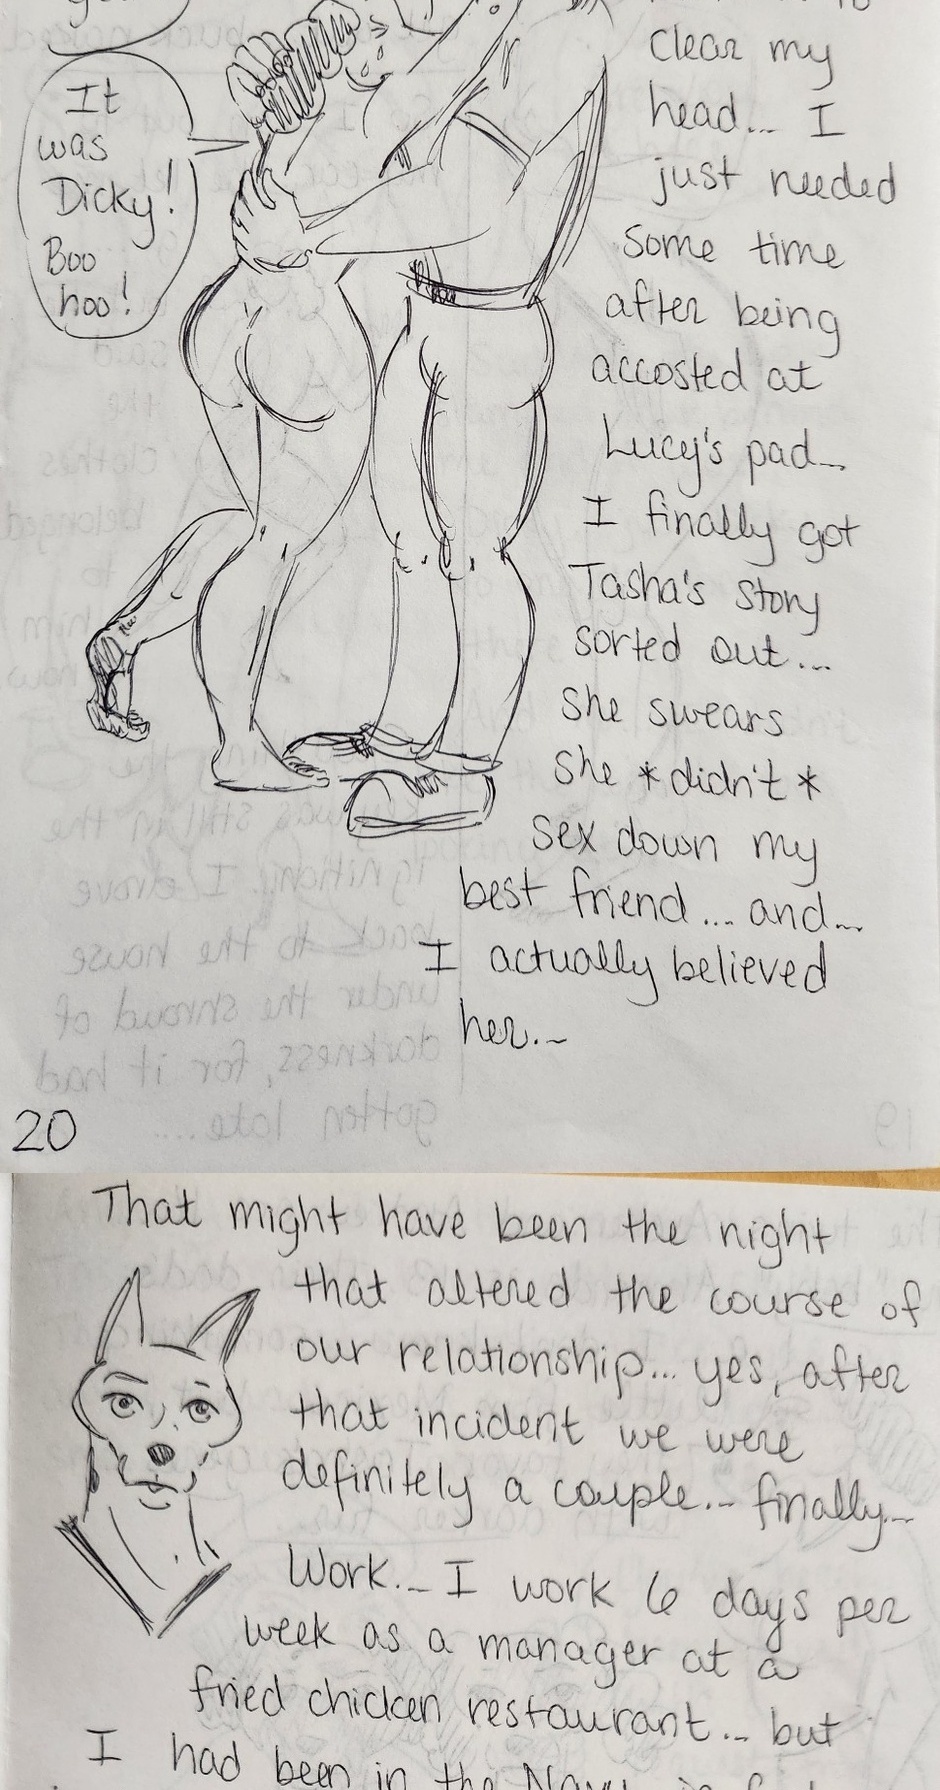 It
was
Dicky!
Boo
hoo!
clear my
head... I
just needed
some time
after being
accosted at
Lucy's pad...
I finally got
Tasha's story
sorted out...
she swears
she *didn't*
sex down my
best friend... and...
I actually believed
her...
20
That might have been the night
that altered the course of
our relationship... yes, after
that incident we were
definitely a couple... finally...
Work... I work 6 days per
week as a manager at a
fried chicken restaurant... but
I had been in the Navy